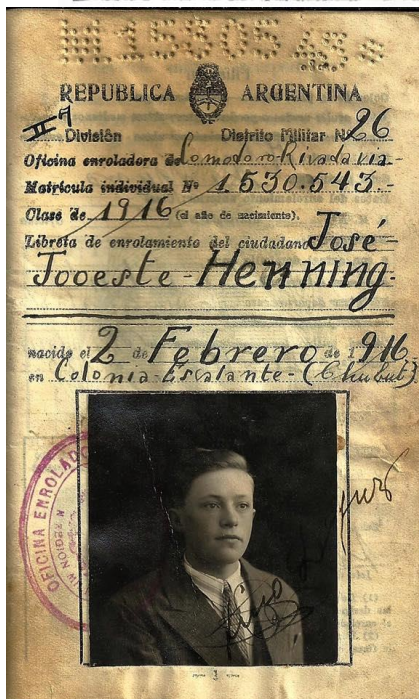 REPUBLICA ARGENTINA
División Distrito Militar Nº 26
Oficina enroladora de Comodoro Rivadavia
Matrícula individual Nº 1.530.543.-
Clase de 1916 (el año de nacimiento).
Libreta de enrolamiento del ciudadano José
Jooeste - Henning.
nacido el 2 de Febrero de 1 916
en Colonia Escalante - (Chubut)
OFICINA ENROLADO